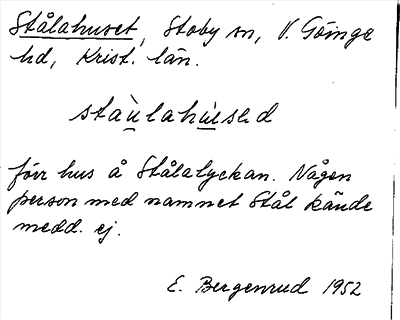 Stålahuset, Stoby sn, V. Göinge
hd, Krist. län.
staùlahùsed
förr hus å Stålalyckan. Någen
person med namnet Stål kände
medd. ej.
E. Bergenrud 1952